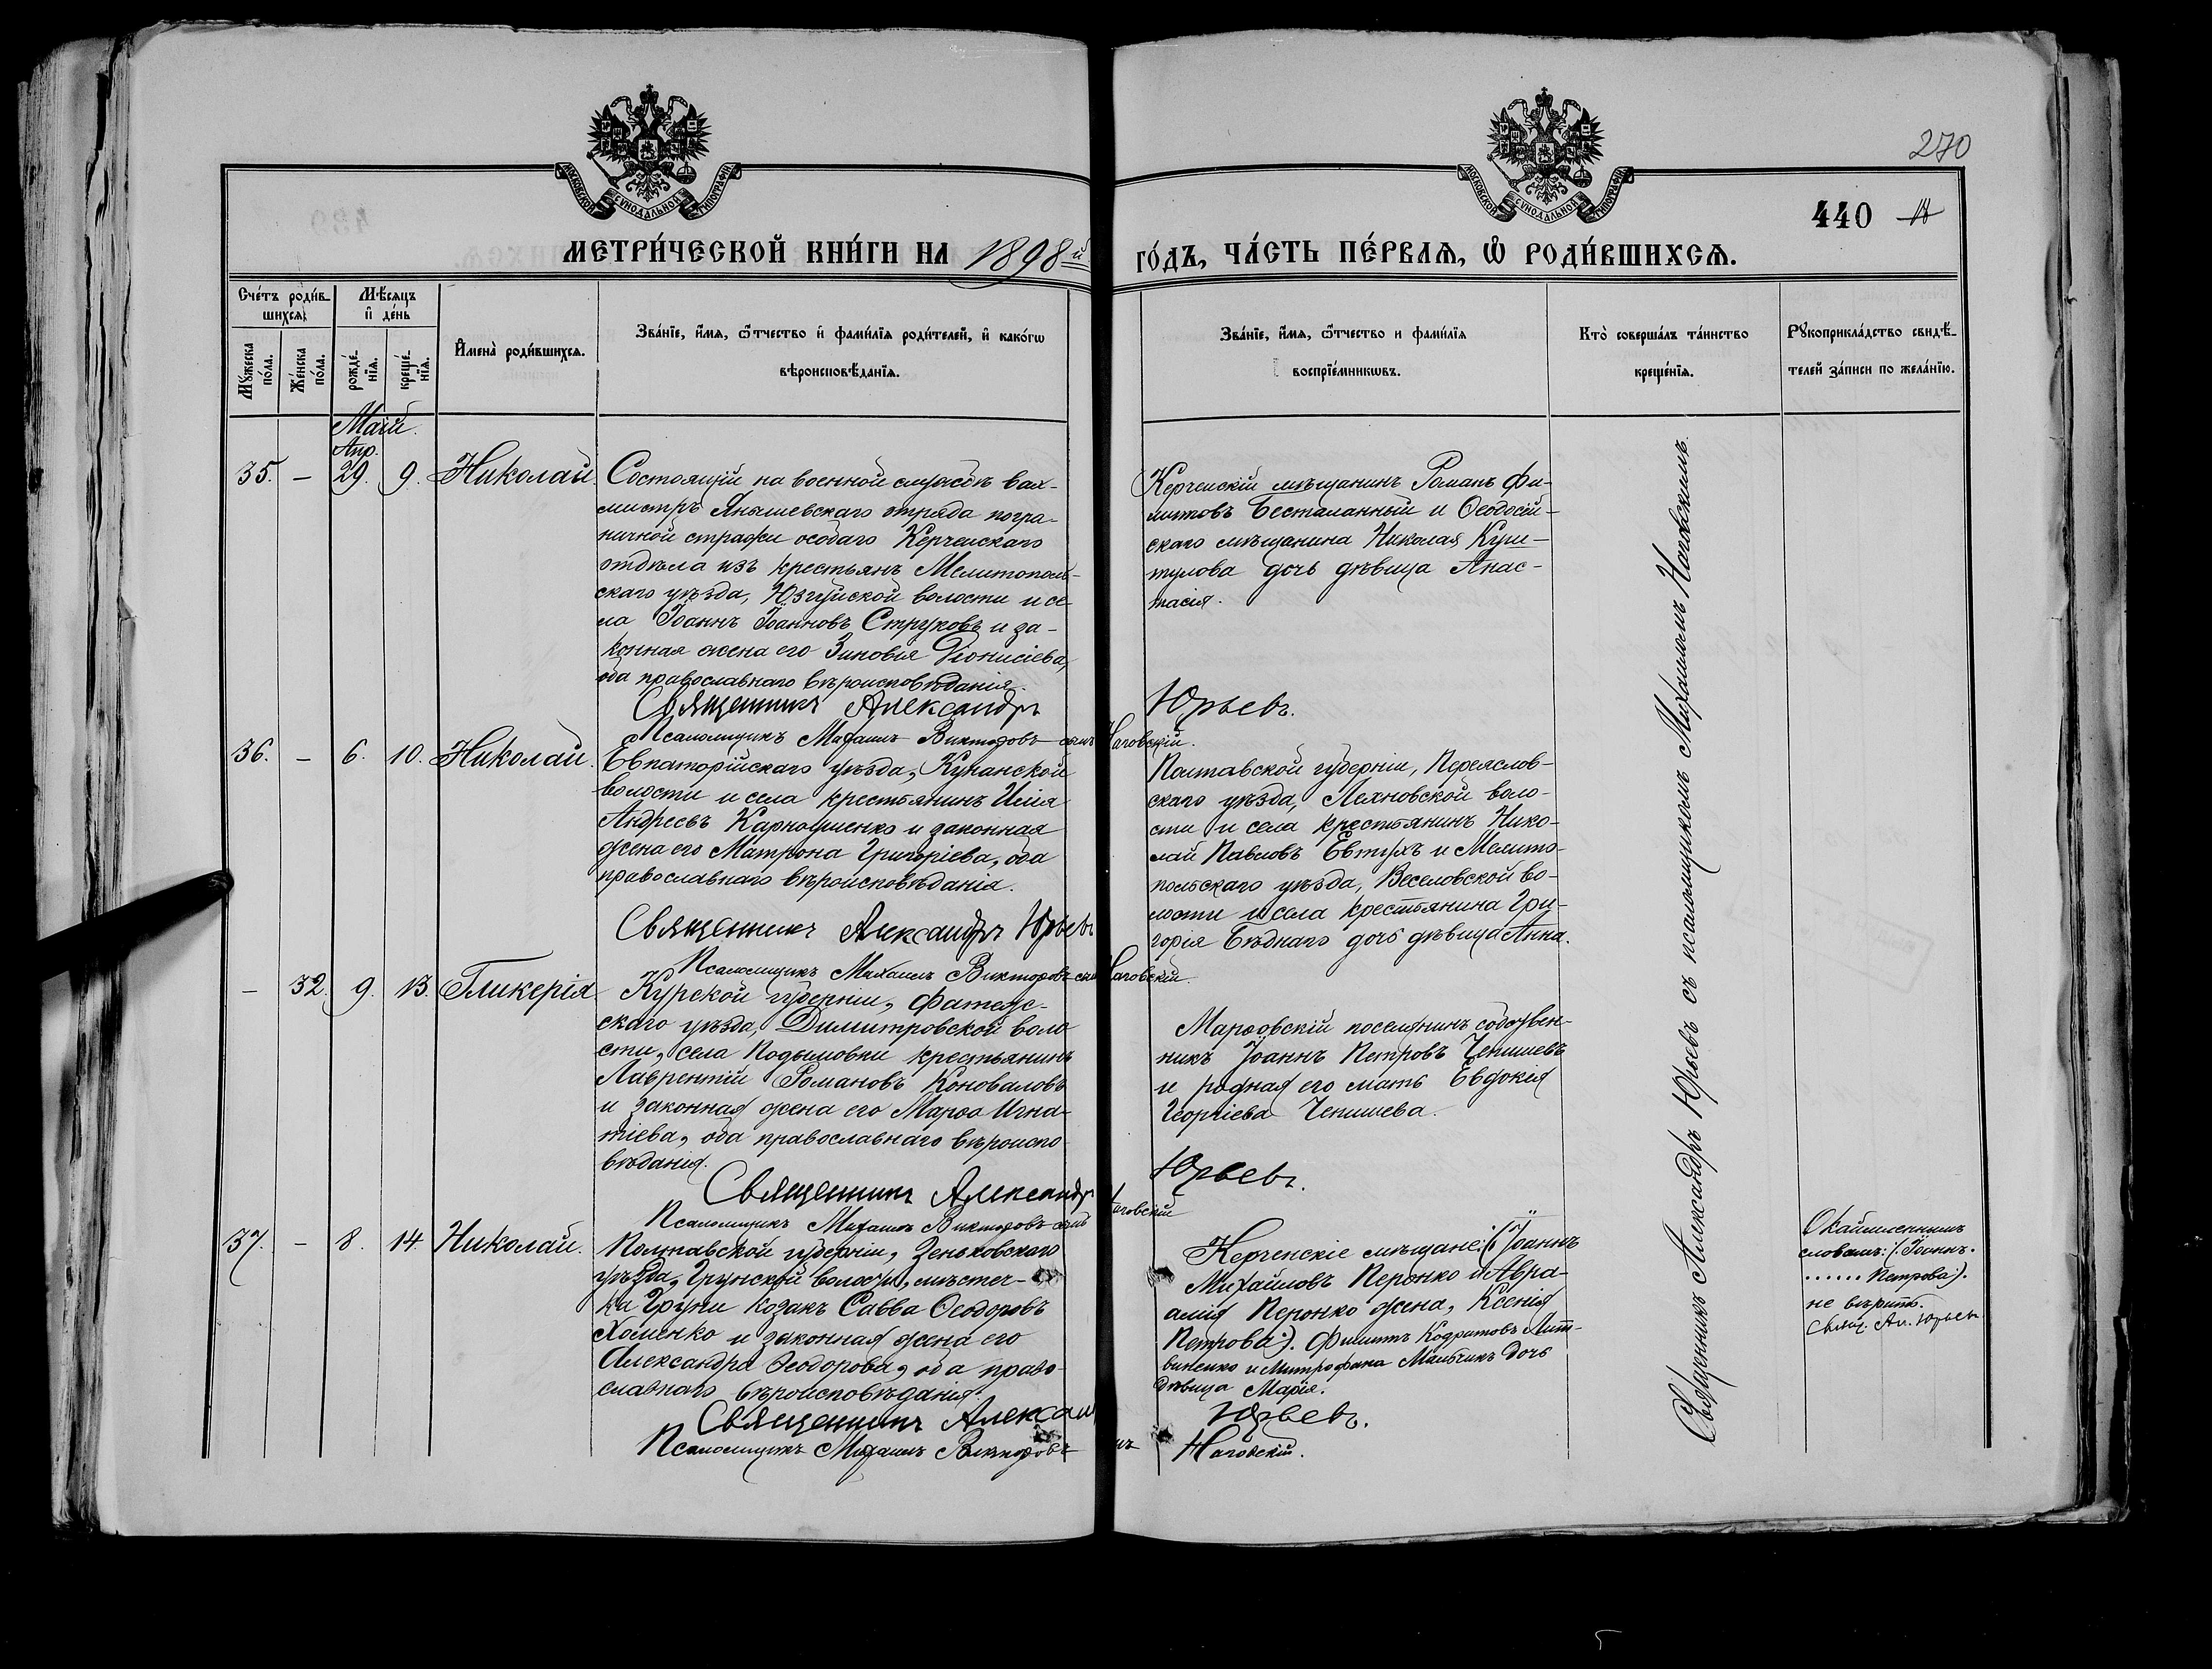 270
440
МОСКОВСКОЙ СѴНОДАЛЬНОЙ ТИПОГРАФІИ
МОСКОВСКОЙ СѴНОДАЛЬНОЙ ТИПОГРАФІИ
МЕТРИ́ЧЕСКОЙ КНИ́ГИ НА 1898й
ГО́ДЪ, ЧА́СТЬ ПЕ́РВАѦ, Ѡ҆ РОДИ́ВШИХСѦ.
Счетъ роди́в-
шихсѧ
Мѣ́сяцъ
и҆ де́нь
Мꙋ́жеска по́ла.
Же́нска по́ла.
рожде́нїѧ.
креще́нїѧ.
И҆мена̀ роди́вшихсѧ.
Зва́нїе, и҆́мѧ, ѻ҆́тчество и҆ фами́лїѧ роди́телей, и҆ како́гѡ
вѣроисповѣ́данїѧ.
Зва́нїе, и҆́мѧ, ѻ҆́тчество и фами́лїѧ
воспрїе́мникѡвъ.
Кто̀ соверша́лъ та́инство
креще́нїѧ.
Рꙋкоприкла́дство свидѣ́-
телей за́писи по жела́нїю.
Май.
Апр.
35. — 29. 9. Николай
Состоящій на военной службѣ вах-
мистръ Янышевскаго отряда погра-
ничной стражи особаго Керченскаго
отдѣла изъ крестьянъ Мелитополь-
скаго уѣзда, Юзкуйской волости и се-
ла Іоаннъ Іоанновъ Струковъ и за-
конная жена его Зиновія Діонисіева,
оба православнаго вѣроисповѣданія.
Священникъ Александръ Юрьевъ.
Псаломщикъ Михаилъ Викторовъ сынъ Наговскій.
Керченскій мѣщанинъ Романъ Фи-
липповъ Бесталанный и Ѳеодосій-
скаго мѣщанина Николая
дочь дѣвица Анас-
тасія.
36. — 6. 10. Николай.
Евпаторійскаго уѣзда, Кунанской
волости и села крестьянинъ Илія
Андреевъ Карнаушенко и законная
жена его Матрона Григоріева, оба
православнаго вѣроисповѣданія.
Священникъ Александръ Юрьевъ
Псаломщикъ Михаилъ Викторовъ сынъ Наговскій.
Полтавской губерніи, Переяслов-
скаго уѣзда, Лехновской воло-
сти и села крестьянинъ Нико-
лай Павловъ Евтухъ и Мелито-
польскаго уѣзда, Веселовской во-
лости и села крестьянина Гри-
горія Бѣднаго дочь дѣвица Анна.
— 32. 9. 13. Гликерія
Курской губерніи, Фатеж-
скаго уѣзда, Димитровской воло
сти, села Подымовки крестьянинъ
Лаврентій Романовъ Коноваловъ
и законная жена его Марѳа Игна-
тіева, оба православнаго вѣроиспо
вѣданія.
Священникъ Александръ Юрьевъ.
Псаломщикъ Михаилъ Викторовъ сынъ Наговскій
Марѳовскій поселянинъ собствен-
никъ Іоаннъ Петровъ Чепишевъ
и родная его мать Евдокія
Георгіева Чепишева.
37. — 8. 14. Николай.
Полтавской губерніи, Зеньковскаго
уѣзда, Грунской волости, мѣстеч-
ка Груни козакъ Савва Ѳеодоровъ
Хоменко и законная жена его
Александра Ѳеодорова, оба право-
славнаго вѣроисповѣданія.
Священникъ Александръ Юрьевъ.
Псаломщикъ Михаилъ Викторовъ сынъ Наговскій.
Керченскіе мѣщане: (Іоаннъ
Михайловъ Перонко и Авра-
амія Перонко жена, Ксенія
Петрова). Филиппъ Кодратовъ Лит-
виненко и Митрофана Мальчикъ дочь
дѣвица Марія.
словамъ: (Іоаннъ.
...... Петрова).
не вѣрить.
Свящ. Ал. Юрьевъ
Священникъ Александръ Юрьевъ съ псаломщикомъ Михаиломъ Наговскимъ.